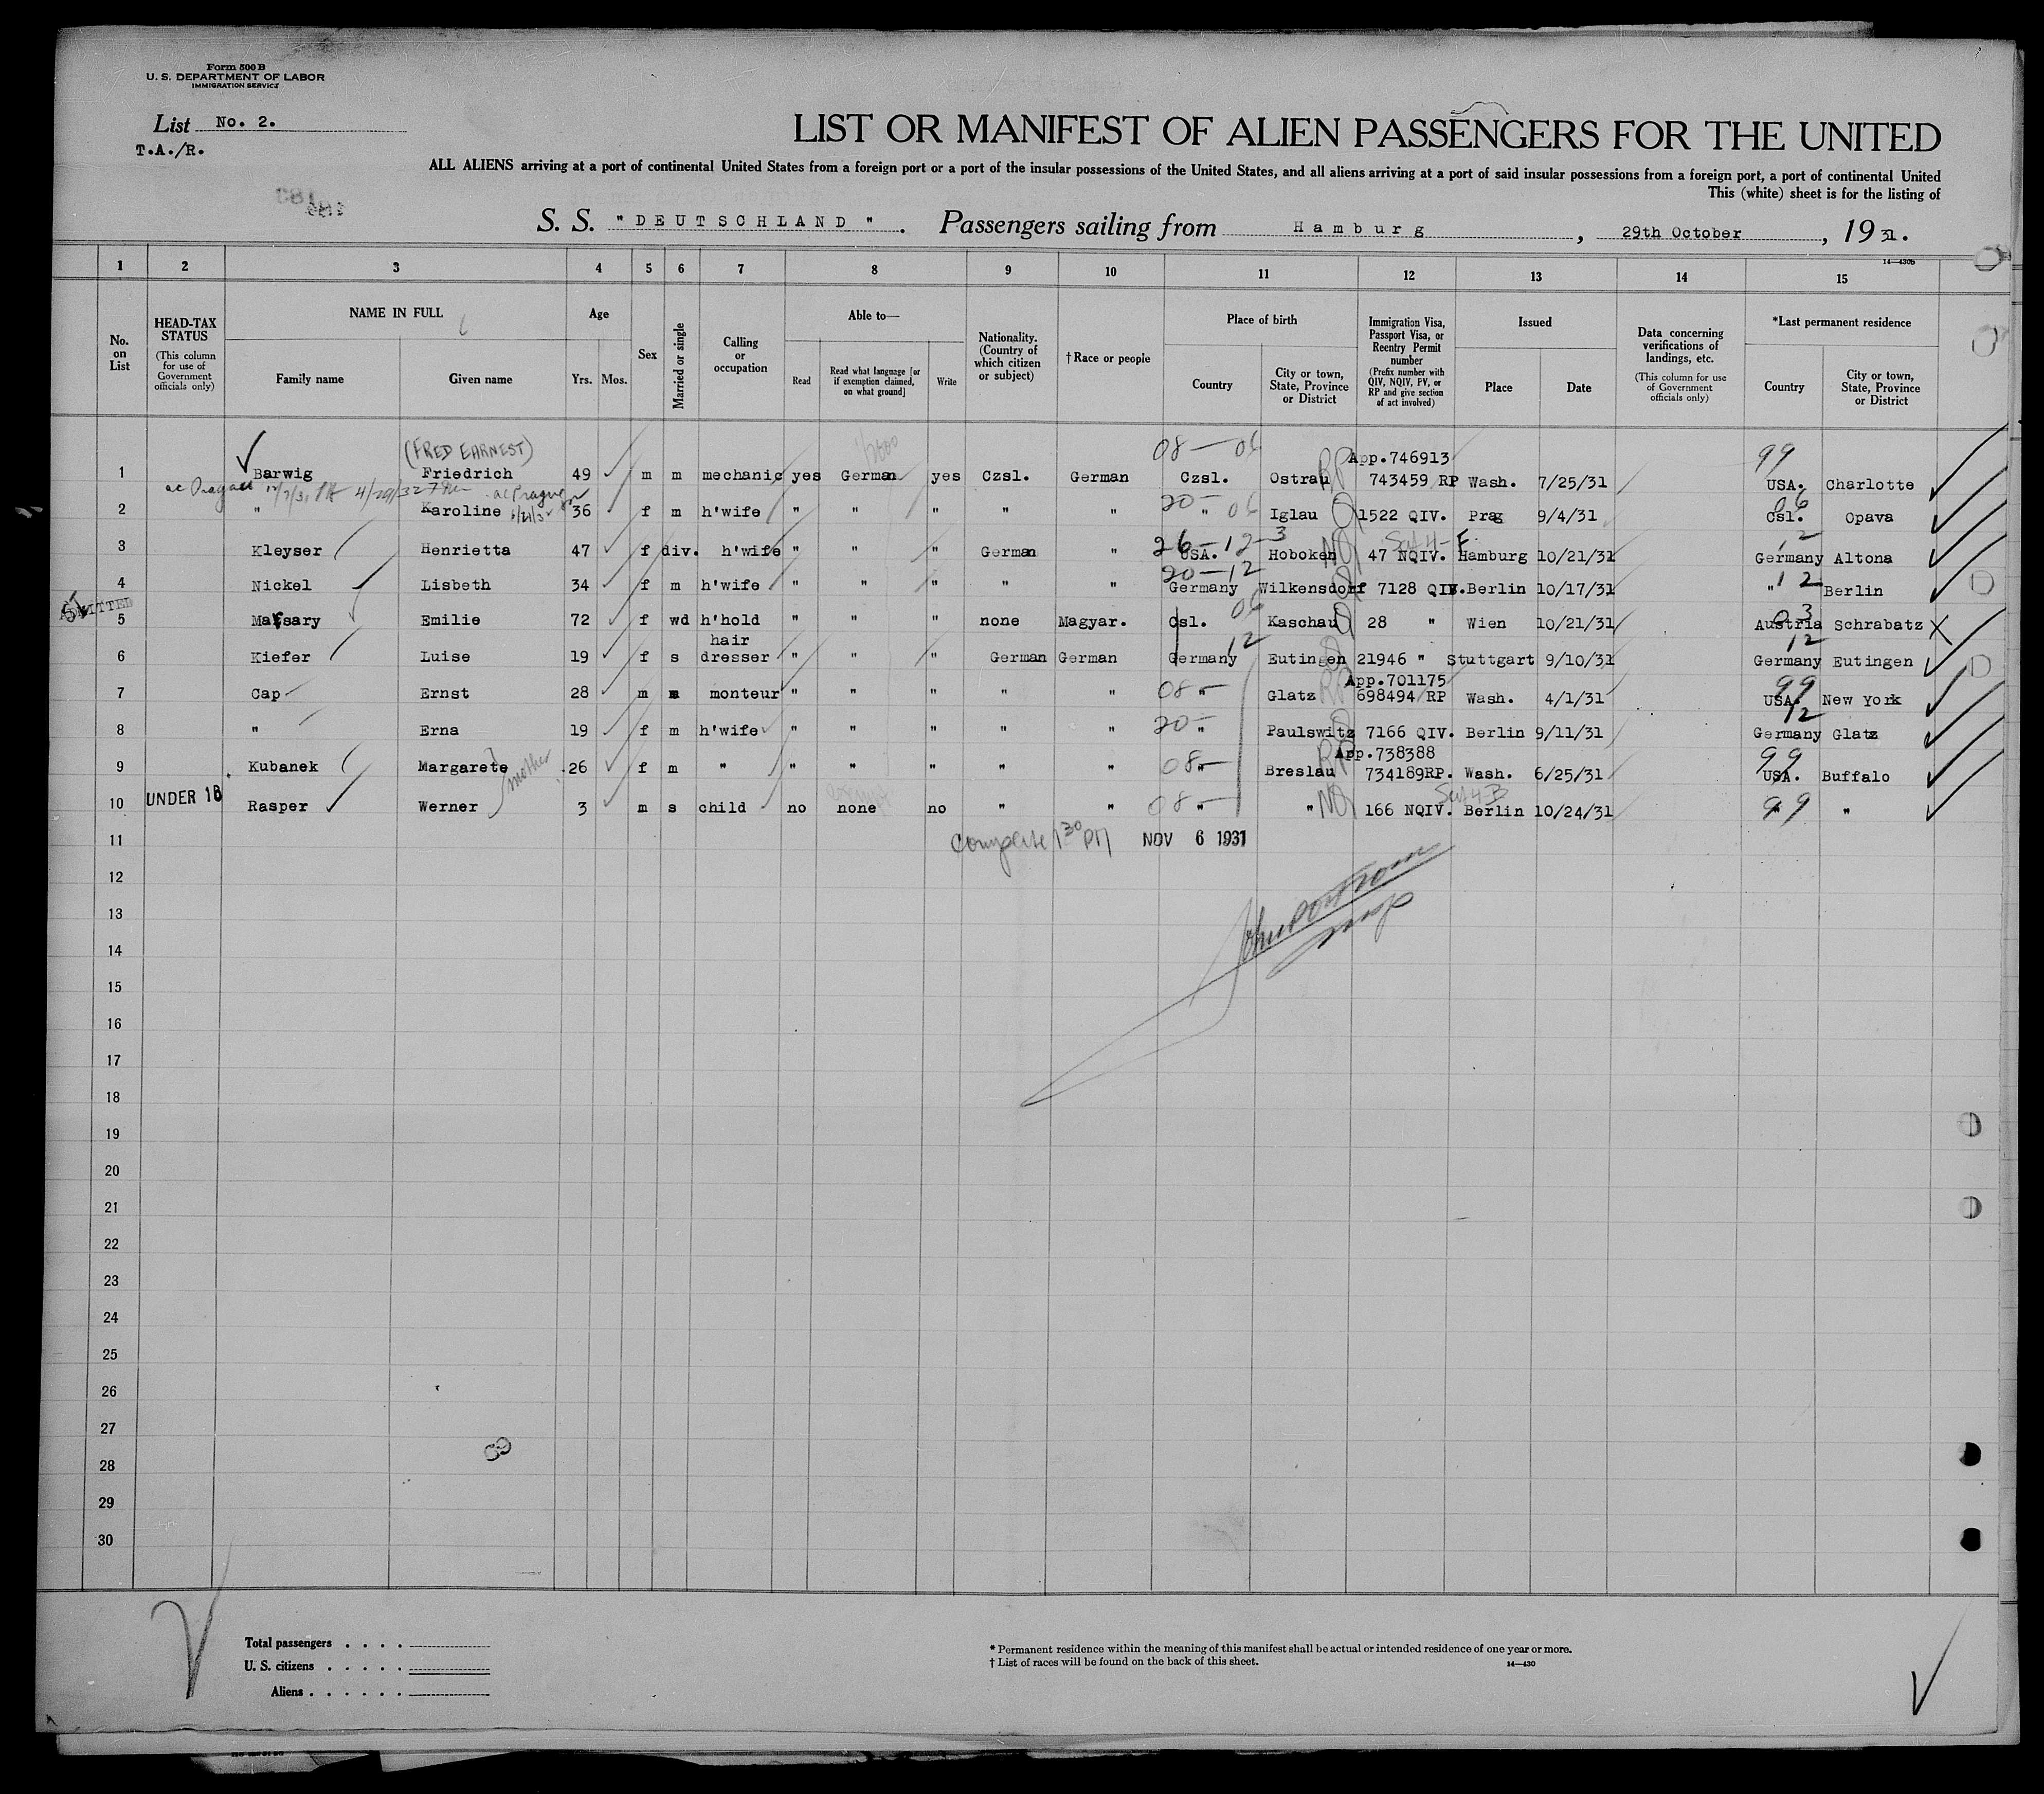 Form 500 B
U. S. DEPARTMENT OF LABOR
IMMIGRATION SERVICE
List No. 2.
T.A./R.
LIST OR MANIFEST OF ALIEN PASSENGERS FOR THE UNITED
ALL ALIENS arriving at a port of continental United States from a foreign port or a port of the insular possessions of the United States, and all aliens arriving at a port of said insular possessions from a foreign port, a port of continental United
This (white) sheet is for the listing of
S. S. "DEUTSCHLAND". Passengers sailing from Hamburg, 29th October, 1931.
14—430b
1 2 3 4 5 6 7 8 9 10 11 12 13 14 15
No. on List
HEAD-TAX STATUS (This column for use of Government officials only)
NAME IN FULL
Family name Given name
Age
Yrs. Mos.
Sex
Married or single
Calling or occupation
Able to—
Read Read what language [or if exemption claimed, on what ground] Write
Nationality. (Country of which citizen or subject)
† Race or people
Place of birth
Country City or town, State, Province or District
Immigration Visa, Passport Visa, or Reentry Permit number (Prefix number with QIV, NQIV, PV, or RP and give section of act involved)
Issued
Place Date
Data concerning verifications of landings, etc. (This column for use of Government officials only)
*Last permanent residence
Country City or town, State, Province or District
(FRED EARNEST) 08 — 06 App.746913 99
1 Barwig Friedrich 49 m m mechanic yes German yes Czsl. German Czsl. Ostrau RP 743459 RP Wash. 7/25/31 USA. Charlotte
2 " Karoline 36 f m h'wife " " " " " 20 — " 06 Iglau Q 1522 QIV. Prag 9/4/31 Csl. 06 Opava
3 Kleyser Henrietta 47 f div. h'wife " " " German " 26—12—3 USA. Hoboken NQ 47 NQIV. Hamburg 10/21/31 Germany 12 Altona
4 Nickel Lisbeth 34 f m h'wife " " " " " 20—12 Germany Wilkensdorf Q 7128 QIV. Berlin 10/17/31 " 12 Berlin
ADMITTED
5 Massary Emilie 72 f wd h'hold " " " none Magyar. Csl. 06 Kaschau Q 28 " Wien 10/21/31 Austria 03 Schrabatz X
6 Kiefer Luise 19 f s hair dresser " " " German German Germany 12 Eutingen Q 21946 " Stuttgart 9/10/31 Germany 12 Eutingen
App.701175
7 Cap Ernst 28 m m monteur " " " " " 08 — " Glatz RP 698494 RP Wash. 4/1/31 USA. 99 New York
8 " Erna 19 f m h'wife " " " " " 20 — " Paulswitz Q 7166 QIV. Berlin 9/11/31 Germany 12 Glatz
App.738388
9 Kubanek Margarete mother 26 f m " " " " " " 08 — " Breslau RP 734189RP. Wash. 6/25/31 USA. 99 Buffalo
10 UNDER 16 Rasper Werner 3 m s child no none no " " 08 — " " NQ 166 NQIV. Berlin 10/24/31 " 99 "
11 Complete 1 30 PM NOV 6 1931
12
13
14
15
16
17
18
19
20
21
22
23
24
25
26
27
28
29
30
Total passengers . . . .
U. S. citizens . . . . .
Aliens . . . . . .
* Permanent residence within the meaning of this manifest shall be actual or intended residence of one year or more.
† List of races will be found on the back of this sheet.
14—430